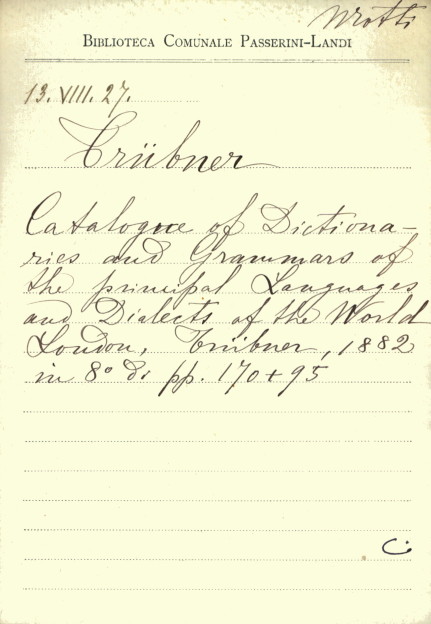 Biblioteca Comunale Passerini-Landi
13. VIII. 27.
Trübner
Catalogue of Dictiona-
ries and Grammars of
the principal Languages
and Dialects of the World
London, Trübner, 1882
in 8° di pp. 170+95